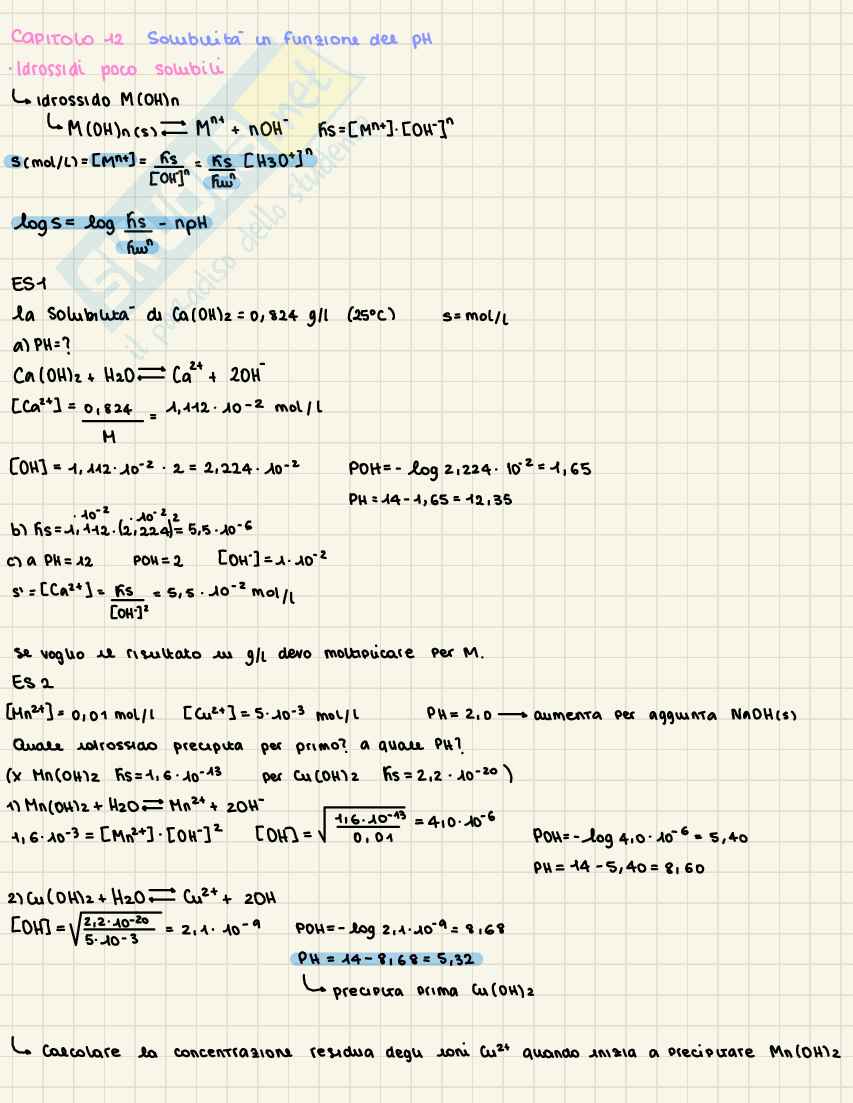 CAPITOLO 12 Solubilità in funzione del pH
· Idrossidi poco solubili
↳ idrossido M(OH)n
↳ M(OH)n(s) ⇌ Mⁿ⁺ + nOH⁻ Ks = [Mⁿ⁺]·[OH⁻]ⁿ
s(mol/L) = [Mⁿ⁺] = Ks/[OH]ⁿ = Ks/Kwⁿ [H3O⁺]ⁿ
log s = log Ks/Kwⁿ - npH
ES1
la solubilità di Ca(OH)2 = 0,824 g/l (25°C) s = mol/L
a) PH = ?
Ca(OH)2 + H2O ⇌ Ca²⁺ + 2OH⁻
[Ca²⁺] = 0,824/M = 1,112·10⁻² mol/L
[OH] = 1,112·10⁻² · 2 = 2,224·10⁻² POH = - log 2,224·10⁻² = 1,65
PH = 14 - 1,65 = 12,35
b) Ks = 1,112·10⁻²·(2,224·10⁻²)² = 5,5·10⁻⁶
c) a PH = 12 POH = 2 [OH⁻] = 1·10⁻²
s' = [Ca²⁺] = Ks/[OH⁻]² = 5,5·10⁻² mol/L
se voglio il risultato in g/L devo moltiplicare per M.
ES 2
[Mn²⁺] = 0,01 mol/L [Cu²⁺] = 5·10⁻³ mol/L PH = 2,0 → aumenta per aggiunta NaOH(s)
Quale idrossido precipita per primo? a quale PH?
(x Mn(OH)2 Ks = 1,6·10⁻¹³ per Cu(OH)2 Ks = 2,2·10⁻²⁰)
1) Mn(OH)2 + H2O ⇌ Mn²⁺ + 2OH⁻
1,6·10⁻³ = [Mn²⁺]·[OH⁻]² [OH] = √(1,6·10⁻¹³/0,01) = 4,0·10⁻⁶ POH = - log 4,0·10⁻⁶ = 5,40
PH = 14 - 5,40 = 8,60
2) Cu(OH)2 + H2O ⇌ Cu²⁺ + 2OH
[OH] = √(2,2·10⁻²⁰/5·10⁻³) = 2,1·10⁻⁹ POH = - log 2,1·10⁻⁹ = 8,68
PH = 14 - 8,68 = 5,32
↳ precipita prima Cu(OH)2
↳ Calcolare la concentrazione residua degli ioni Cu²⁺ quando inizia a precipitare Mn(OH)2
skuola.net
il paradiso dello studente